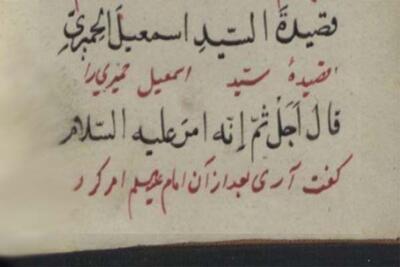 قصيدةَ السّيّدِ اسمعيلَ الحِميَريّ
قصیدهٔ سیّد اسمعیل حمیری را
قالَ اَجَلْ ثمّ اِنّه امرَ عليه السّلام
کفت آری بعد از آن امام علیه‌السلم امر کرد